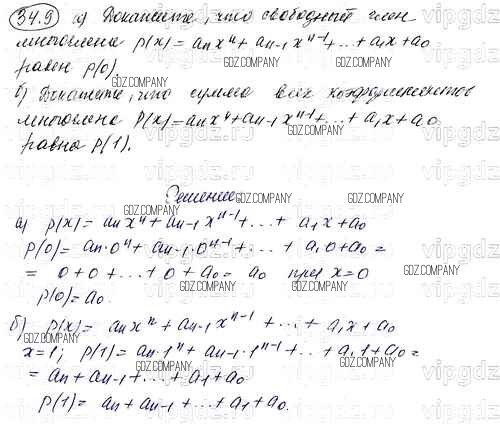 34.9 а) Докажите, что свободный член
многочлена P(x) = aₙxⁿ + aₙ₋₁xⁿ⁻¹ + ... + a₁x + a₀
равен P(0).
б) Докажите, что сумма всех коэффициентов
многочлена P(x) = aₙxⁿ + aₙ₋₁xⁿ⁻¹ + ... + a₁x + a₀
равна P(1).
Решение.
а) P(x) = aₙxⁿ + aₙ₋₁xⁿ⁻¹ + ... + a₁x + a₀
P(0) = aₙ·0ⁿ + aₙ₋₁·0ⁿ⁻¹ + ... + a₁0 + a₀ =
= 0 + 0 + ... + 0 + a₀ = a₀ при x = 0
P(0) = a₀.
б) P(x) = aₙxⁿ + aₙ₋₁xⁿ⁻¹ + ... + a₁x + a₀
x = 1; P(1) = aₙ·1ⁿ + aₙ₋₁·1ⁿ⁻¹ + ... + a₁1 + a₀ =
= aₙ + aₙ₋₁ + ... + a₁ + a₀
P(1) = aₙ + aₙ₋₁ + ... + a₁ + a₀.
GDZ.COMPANY
vipgdz.ru